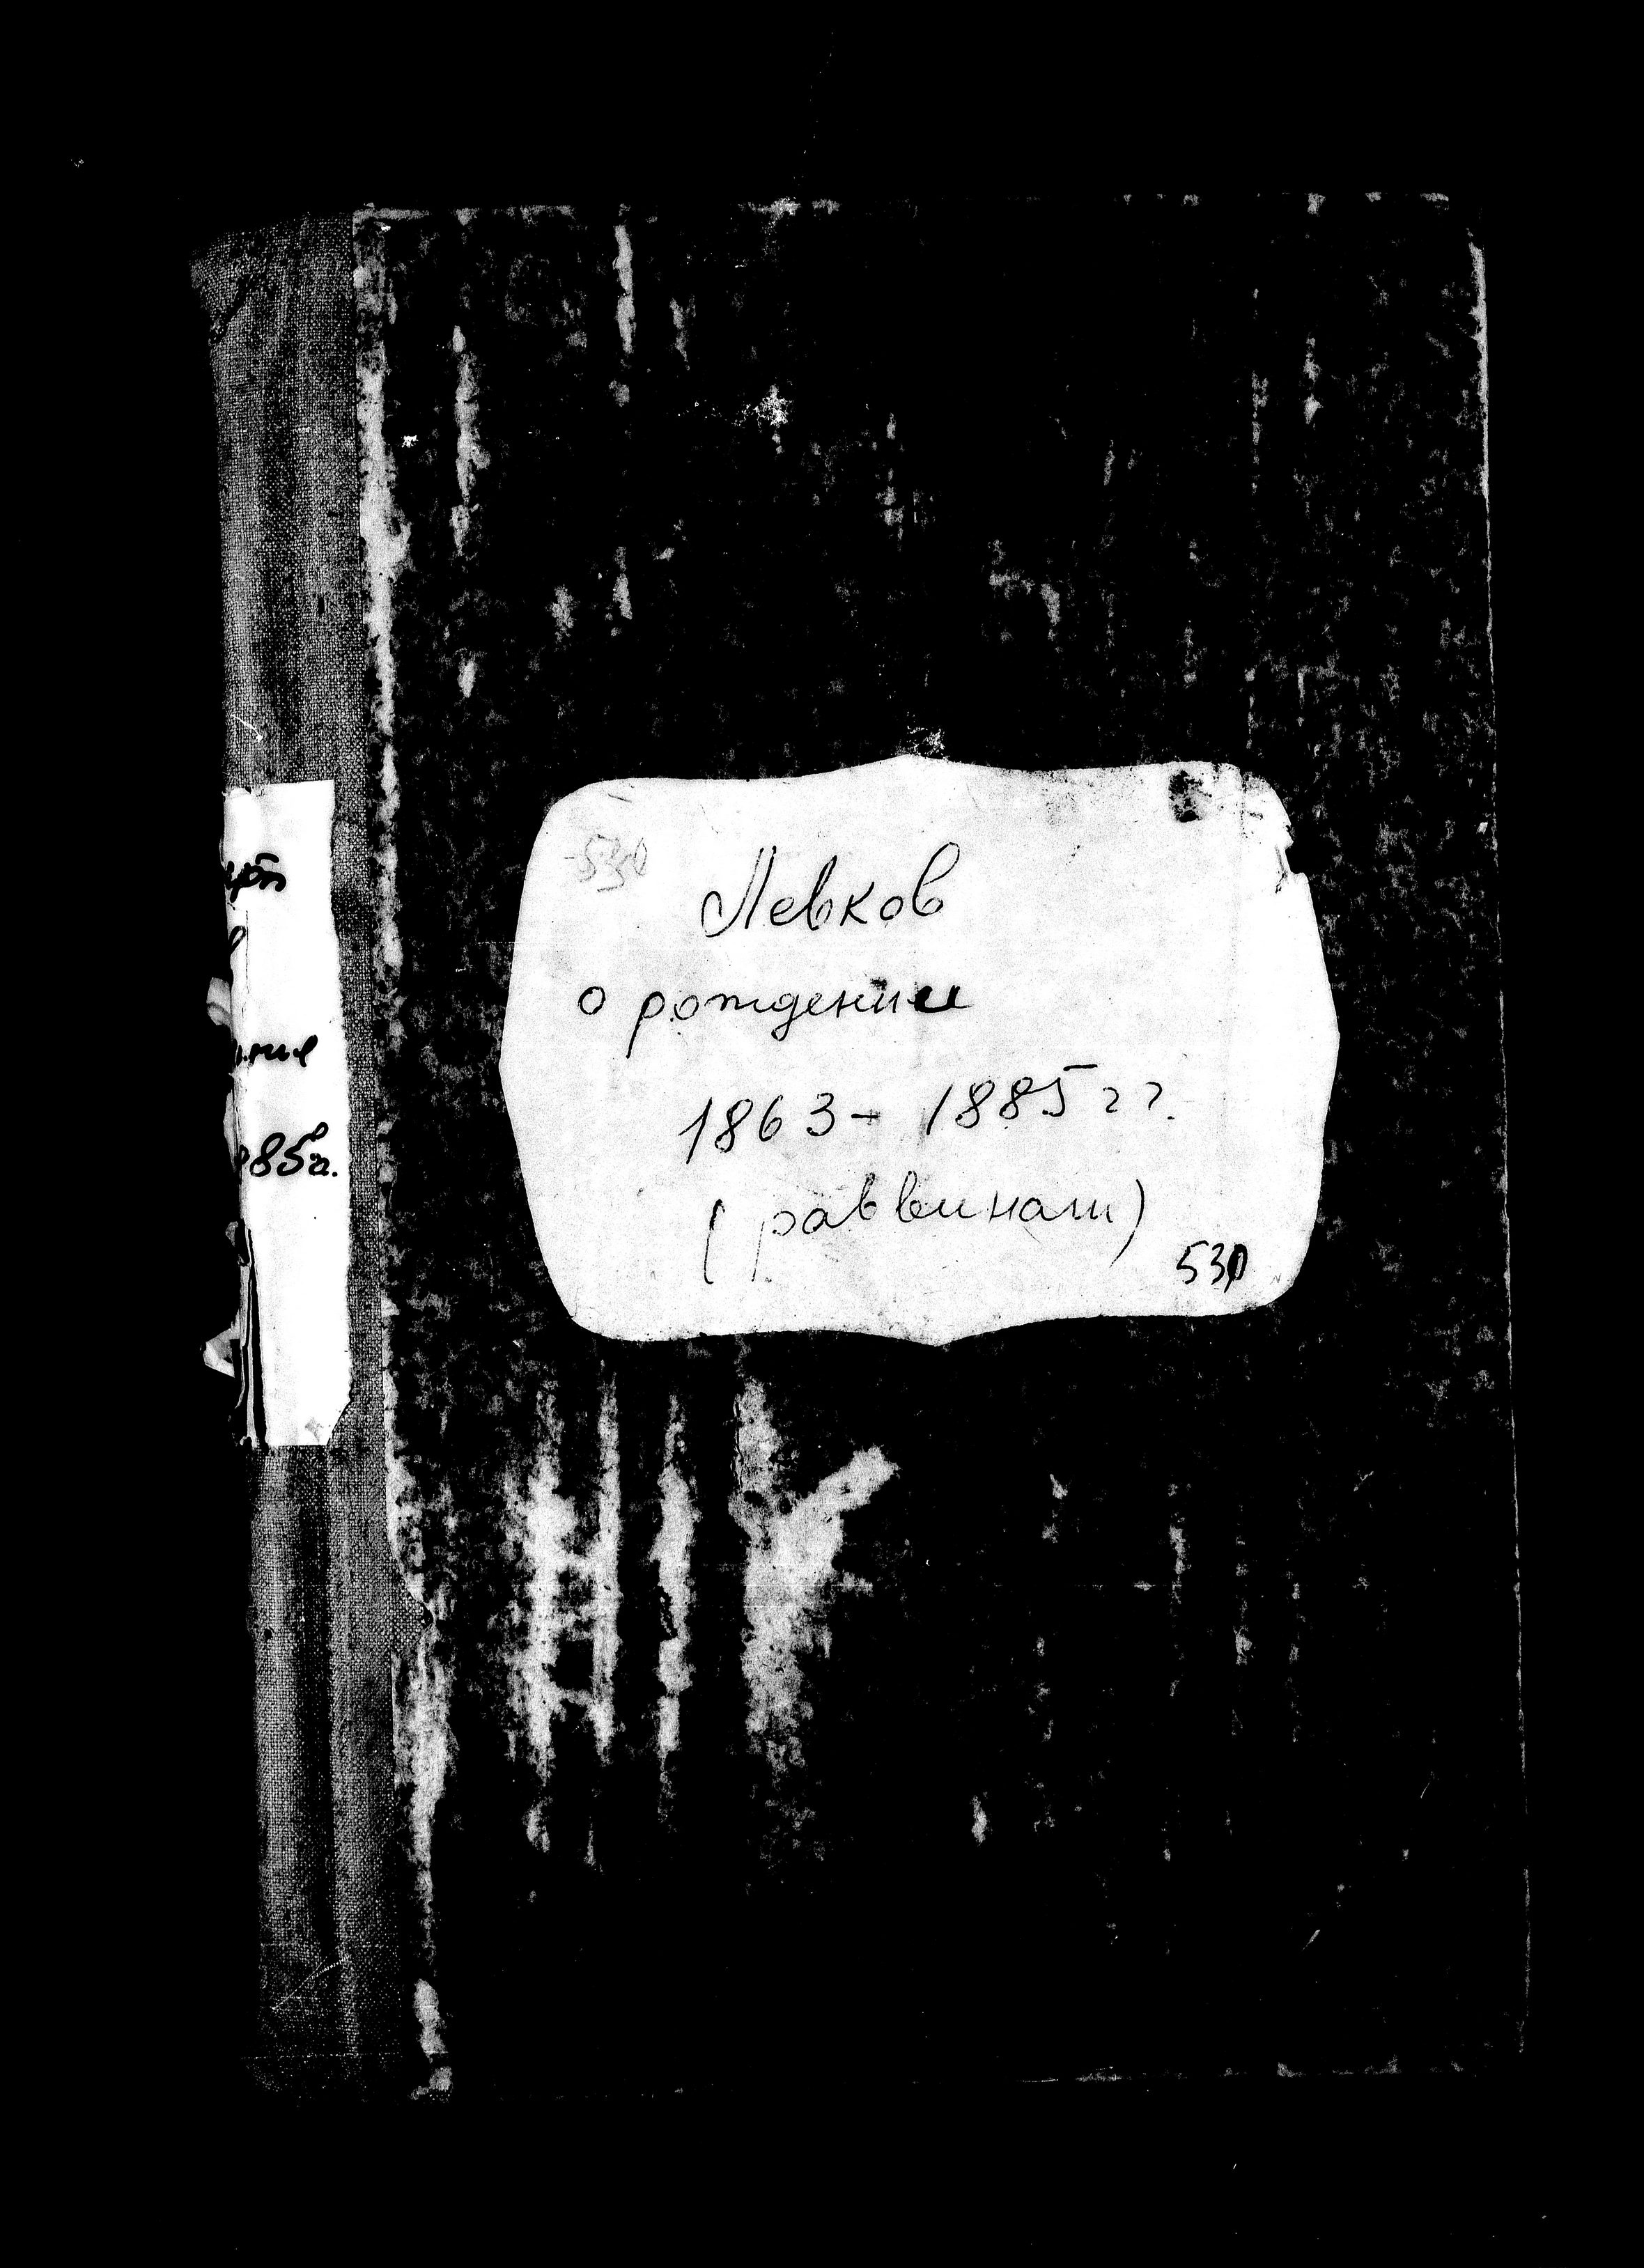 530
Левков
о рождении
1863 - 1885 гг.
(раввинами)
530
85г.